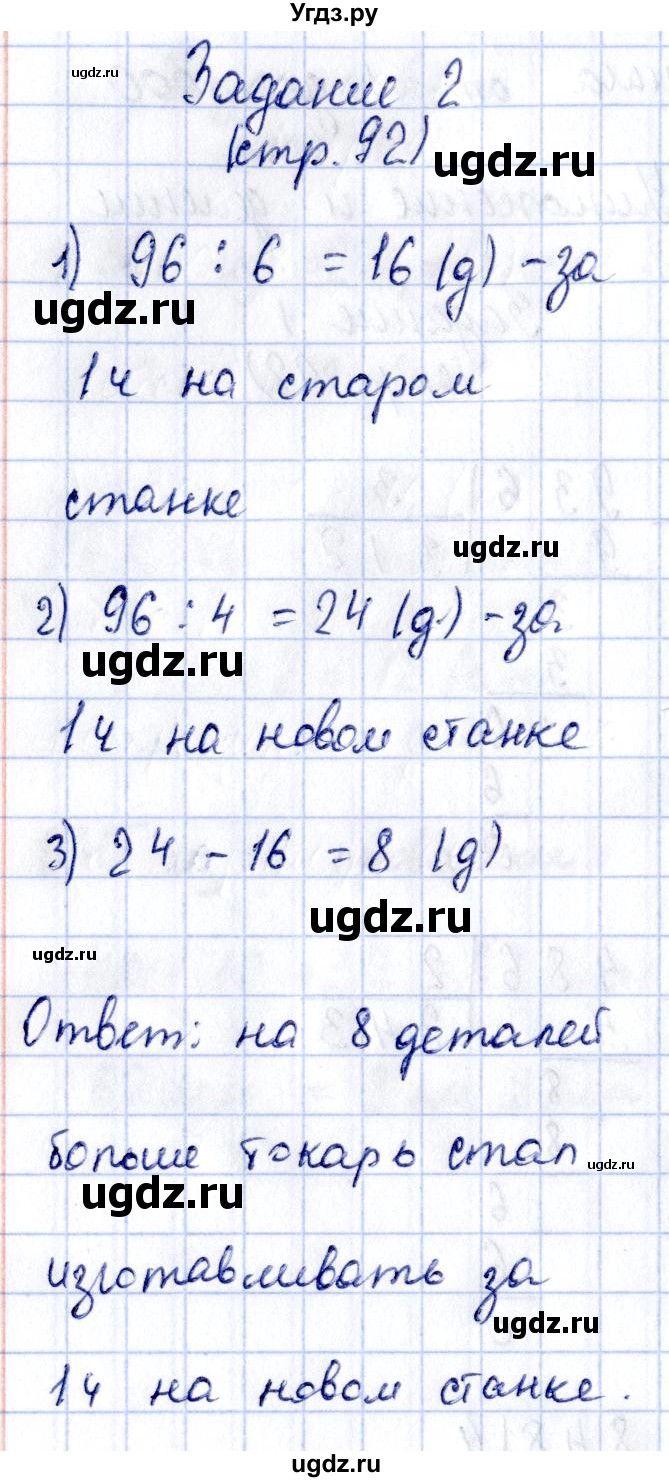 Угдз.ру
ugdz.ru
Задание 2
(стр. 92)
ugdz.ru
1) 96 : 6 = 16 (д) - за
ugdz.ru
1ч на старом
станке
ugdz.ru
2) 96 : 4 = 24 (д.) - за
ugdz.ru
1ч на новом станке
3) 24 - 16 = 8 (д)
ugdz.ru
ugdz.ru
Ответ: на 8 деталей
больше токарь стал
ugdz.ru
ugdz.ru
изготавливать за
ugdz.ru
1ч на новом станке.
ugdz.ru